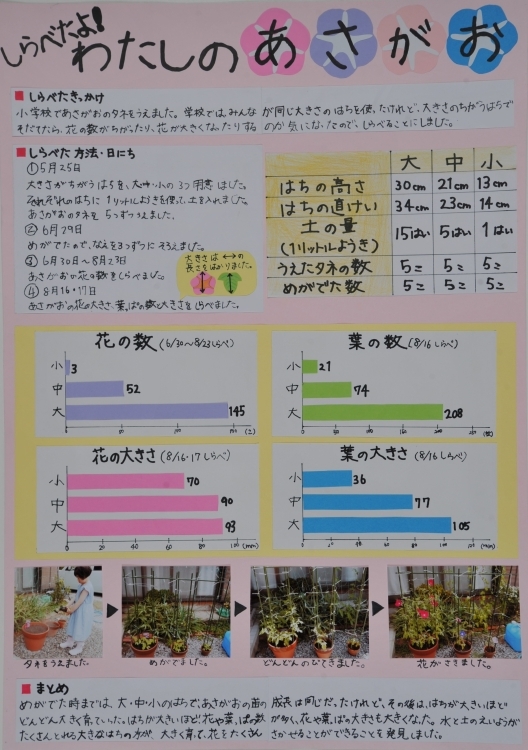 しらべたよ! わたしの あさがお
■ しらべたきっかけ
小学校であさがおのタネをうえました。学校では、みんなが同じ大きさのはちを使ったけれど、大きさのちがうはちで
そだてたら、花の数がちがったり、花が大きくなったりするのか気になったので、しらべることにしました。
■ しらべた方法・日にち
①5月25日
大きさがちがうはちを、大・中・小の3つ用意しました。
それぞれのはちに1リットルようきを使って、土を入れました。
あさがおのタネを5つずつうえました。
②6月29日
めがでたので、なえを3ずつにそろえました。
③6月30日〜8月23日
あさがおの花の数をしらべました。
④8月16・17日
あさがおの花の大きさ、葉っぱの数と大きさをしらべました。
大きさは↔の
長さをはかりました。
大 中 小
はちの高さ 30cm 21cm 13cm
はちの直けい 34cm 23cm 14cm
土の量 15はい 5はい 1はい
(1リットルようき)
うえたタネの数 5こ 5こ 5こ
めがでた数 5こ 5こ 5こ
花の数(6/30〜8/23しらべ)
小 3
中 52
大 145
0 50 100 150 (こ)
葉の数(8/16しらべ)
小 21
中 74
大 208
花の大きさ(8/16・17しらべ)
小 70
中 90
大 93
0 20 40 60 80 100 (mm)
葉の大きさ(8/16しらべ)
小 36
中 77
大 105
タネをうえました。
めがでました。
どんどんのびてきました。
花がさきました。
■ まとめ
めがでた時までは、大・中・小のはちで、あさがおの苗の成長は同じだったけれど、その後は、はちが大きいほど
どんどん大きく育っていった。はちが大きいほど、花や葉っぱの数が多く、花や葉っぱの大きさも大きくなった。水と土のえいようが
たくさんとれる大きなはちの方が、大きく育って、花をたくさんさかせることができることを発見しました。